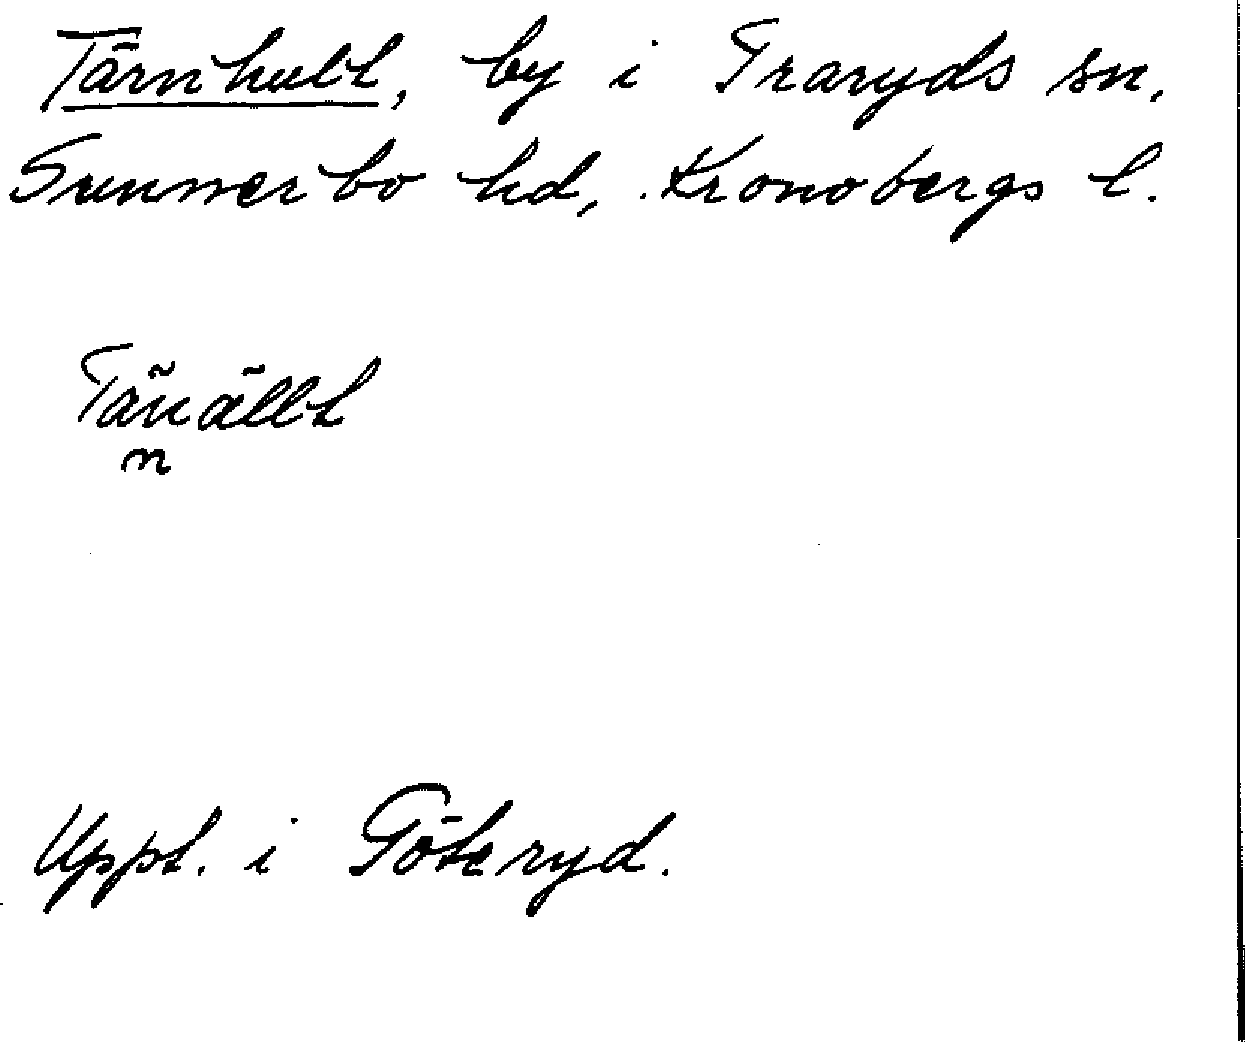 Tärnhult, by i Traryds sn,
Sunnerbo hd, Kronobergs l.
Tänällt
n
Uppt. i Göteryd.